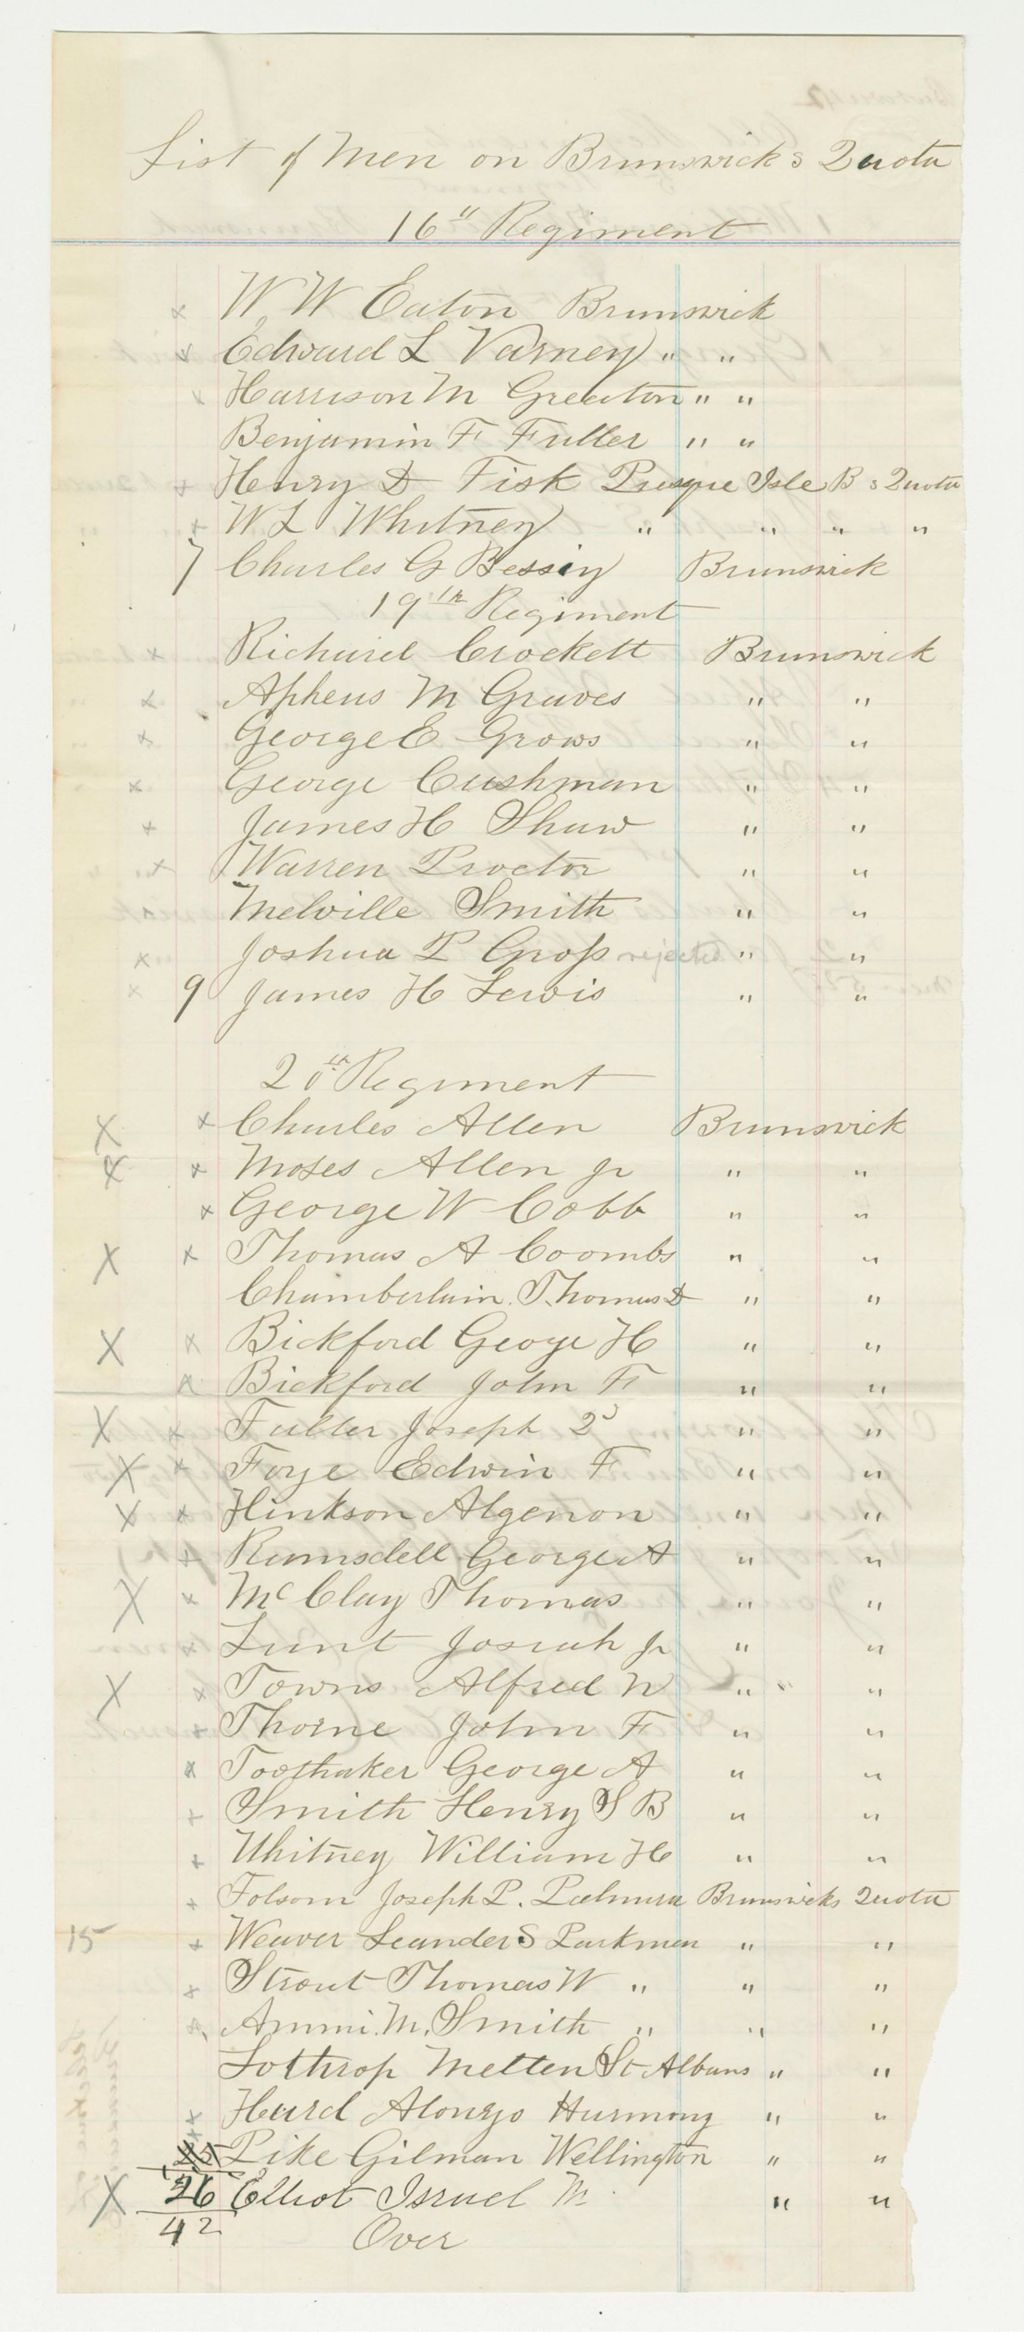 List of Men on Brunswick s Quota
16" Regiment
x W W Eaton Brunswick
x Edward L Varney " "
x Harrison M Greeton " "
Benjamin F Fuller " "
x Henry D Fisk Presque Isle B s Quota
x W L Whitney " " " "
7 Charles G Bessey Brunswick
19th Regiment
x Richard Crockett Brunswick
x Apheus M Graves " "
x George E Grows " "
x George Cushman " "
x James H Shaw " "
x Warren Proctor " "
x Melville Smith " "
x Joshua P Gross rejected " "
x 9 James H Lewis " "
20th Regiment
X x Charles Allen Brunswick
X x Moses Allen Jr " "
x George W Cobb " "
X x Thomas A Coombs " "
Chamberlain. Thomas D " "
X x Bickford George H " "
x Bickford John F " "
X x Fuller Joseph 2d " "
X x Foye Edwin F " "
X x Hinkson Algernon " "
x Ramsdell George A " "
X x McClay Thomas " "
x Lunt Josiah Jr " "
X x Towns Alfred W " "
x Thorne John F " "
x Toothaker George A " "
x Smith Henry S B " "
x Whitney William H " "
x Folsom Joseph P. Palmyra Brunswicks Quota
15 x Weaver Leander S Parkman " "
x Strout Thomas W " " "
x Ammi. M. Smith " " "
Lothrop Melten St Albans " "
x Hurd Alonzo Harmony " "
25 Pike Gilman Wellington " "
X 26 Elliot Israel M. " "
42 Over